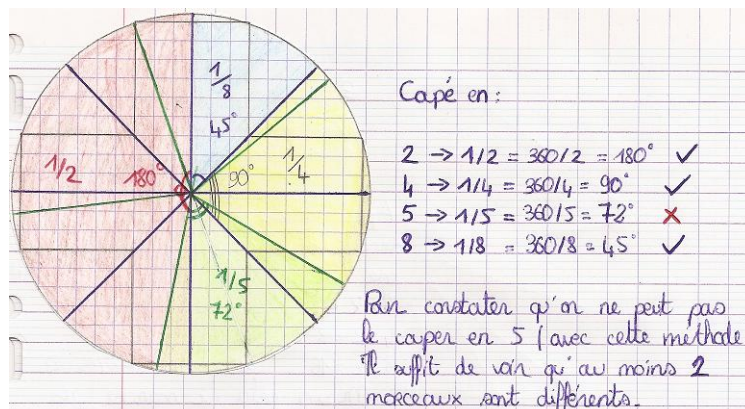 1/8
45°
1/2
180°
90°
1/4
1/5
72°
Capé en :
2 → 1/2 = 360/2 = 180° ✓
4 → 1/4 = 360/4 = 90° ✓
5 → 1/5 = 360/5 = 72° ✗
8 → 1/8 = 360/8 = 45° ✓
Pour constater qu'on ne peut pas
le couper en 5 (avec cette méthode
Il suffit de voir qu'au moins 2
morceaux sont différents.